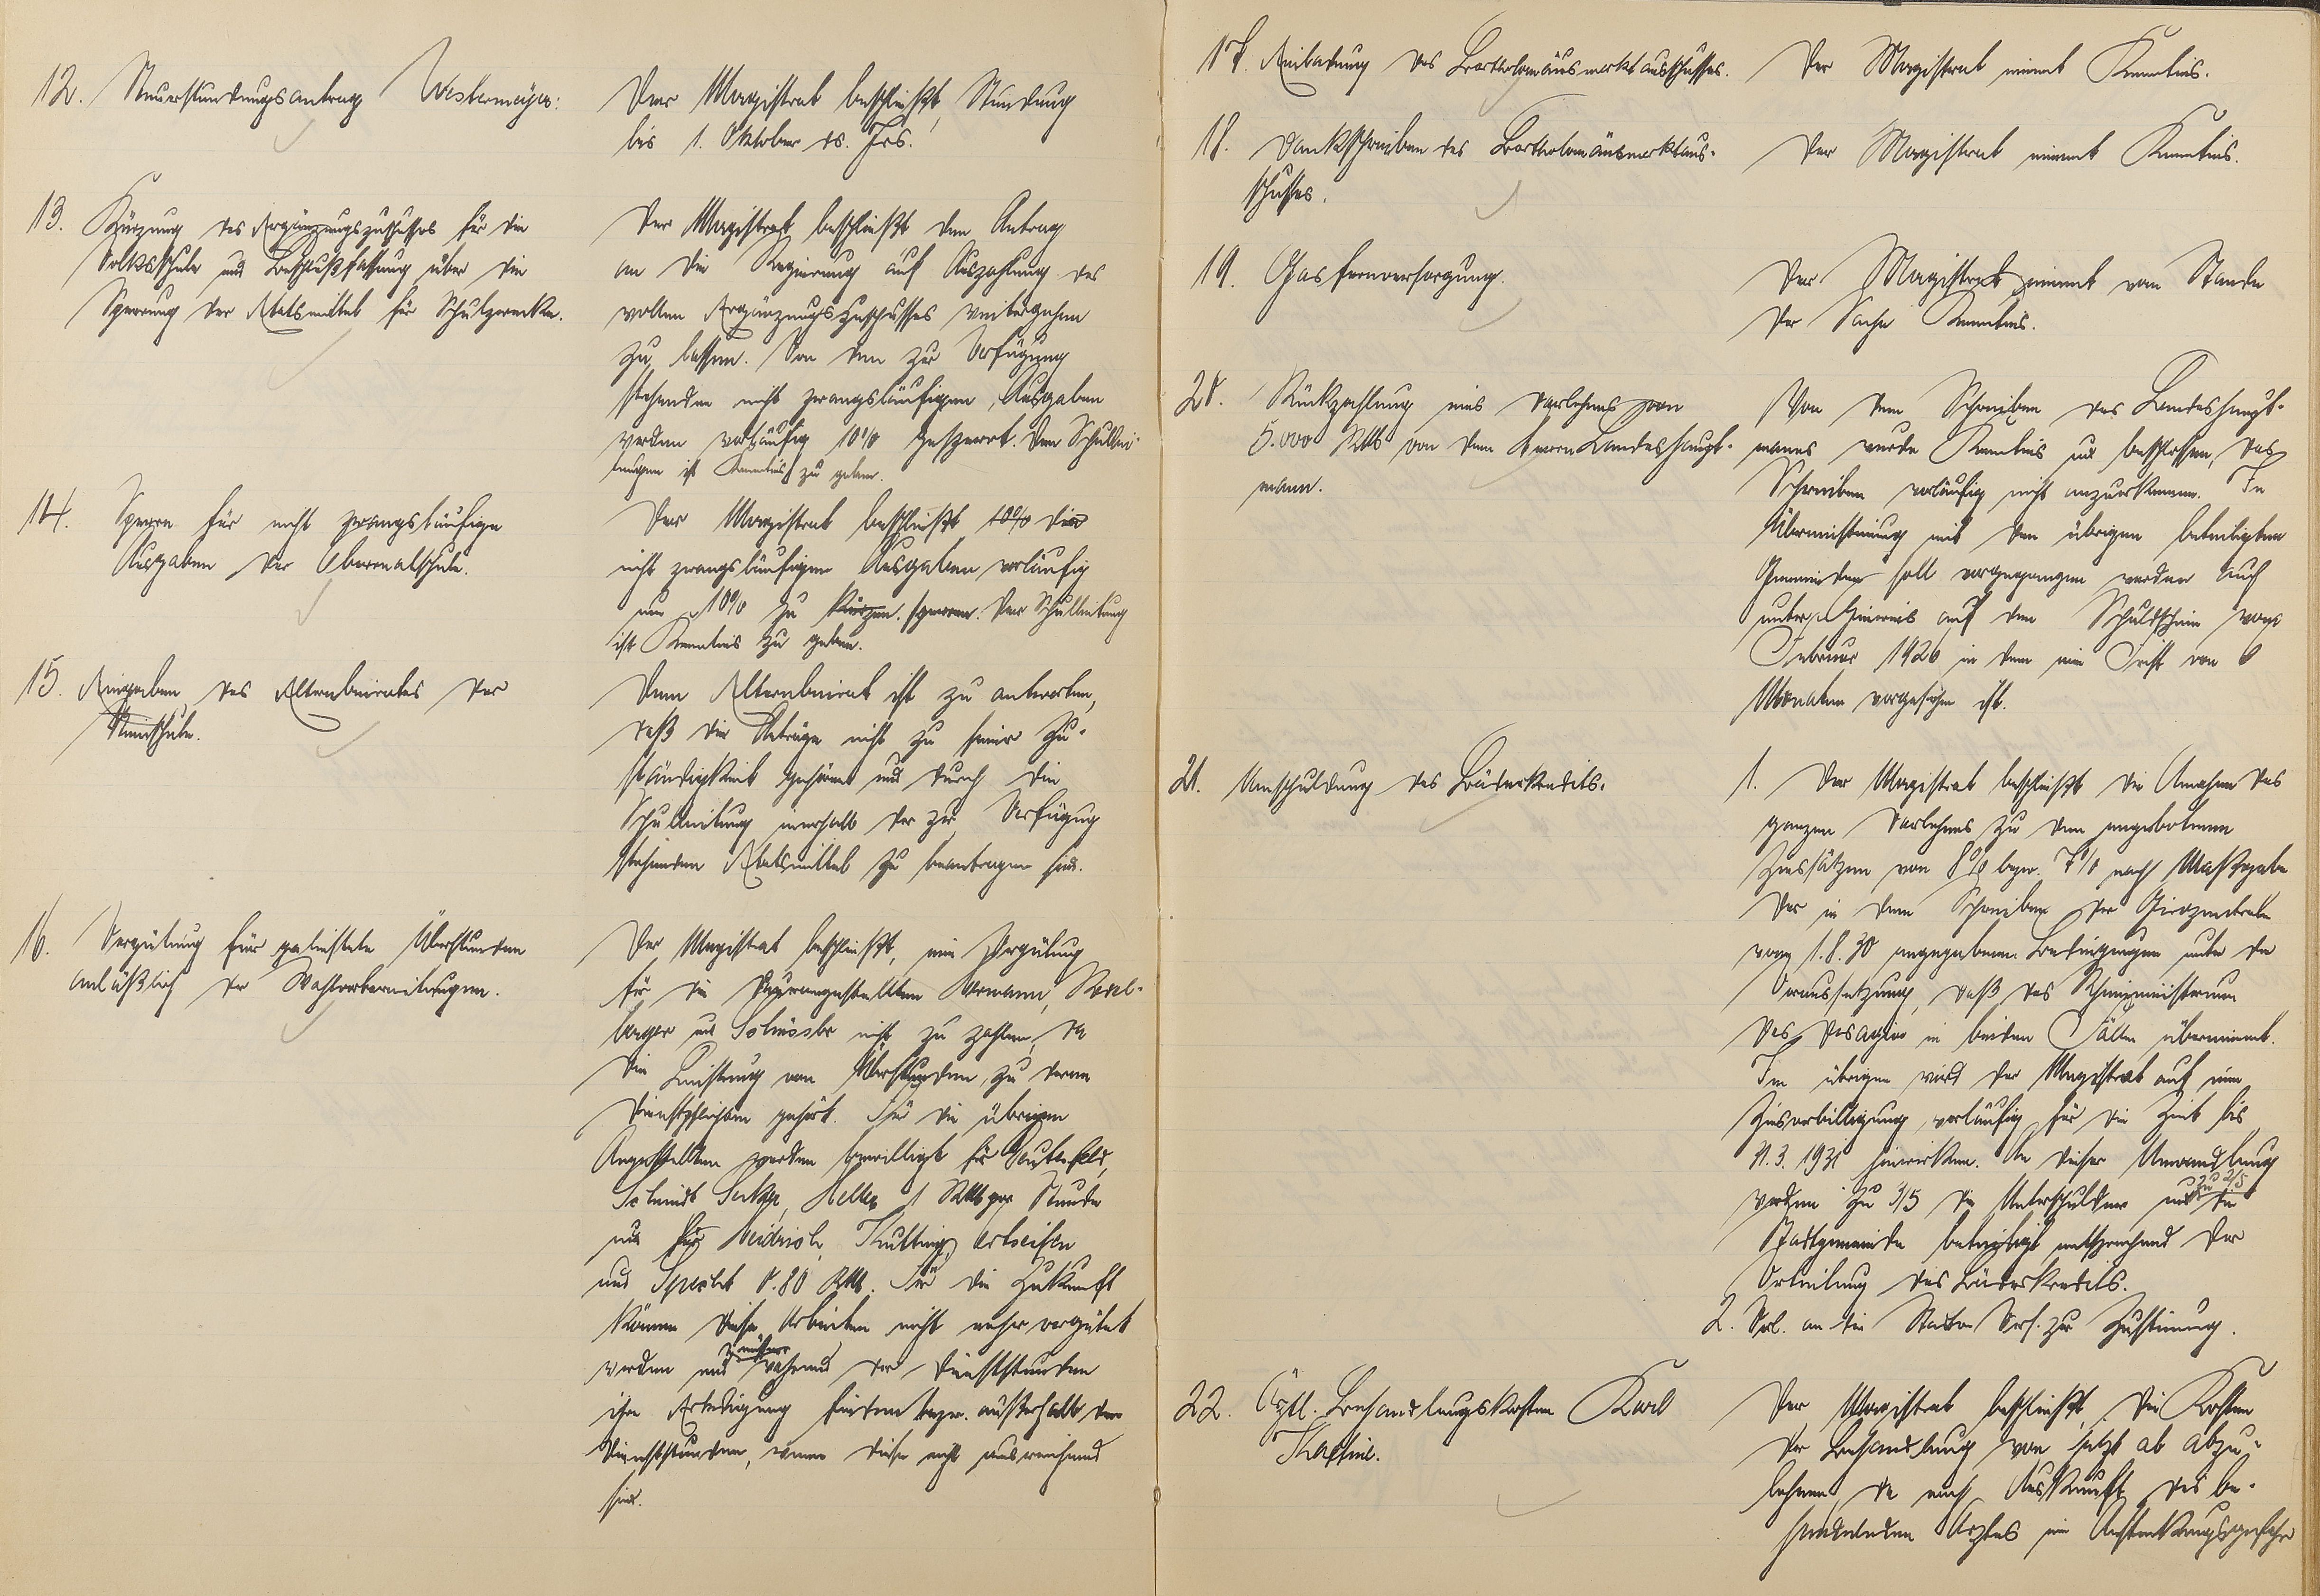 12. Steuerstundungsantrag Westermeyer:
Der Magistrat beschließt, Stundung
bis 1. Oktober ds. Jrs.
13. Kürzung des Ergänzungszuschusses für die
Volksschule und Beschlußfassung über die
Sperrung der Etatsmittel für Schulzwecke.
Der Magistrat beschließt den Antrag
an die Regierung auf Auszahlung des
vollen Ergänzungszuschusses weitergehen
zu lassen. Von den zur Verfügung
stehenden nicht zwangsläufigen Ausgaben
werden vorläufig 10% gesperrt. Den Schullei-
tungen ist Kenntnis zu geben.
14. Sperre für nicht zwangsläufige
Ausgaben der Oberrealschule.
Der Magistrat beschließt 10% die
nicht zwangsläufigen Ausgaben vorläufig
um 10% zu kürzen. sperren. Der Schulleitung
ist Kenntnis zu geben.
15. Eingaben des Elternbeirates der
Schule.
Dem Elternbeirat ist zu antworten,
daß die Anträge nicht zu seiner Zu-
ständigkeit gehören und durch die
Schulleitung innerhalb der zur Verfügung
stehenden Etatsmittel zu beantragen sind.
16. Vergütung für geleistete Überstunden
anläßlich der Wahlvorbereitungen.
Der Magistrat beschließt, eine Vergütung
für die Büroangestellten Hermann,
und nicht zu zahlen, da
die Leistung von Überstunden, zu deren
Dienstpflichten gehört. Für die übrigen
Angestellten werden bewilligt für
Schmidt 1 RM per Stunde
und für
und Specht 0.80 RM. Für die Zukunft
können diese Arbeiten nicht mehr vergütet
werden und müssen während der Dienststunden
ihre Erledigung finden bezw. außerhalb der
Dienststunden, wenn diese nicht ausreichend
sind.
17. Einladung des Bartholomäusmarktausschusses.
Der Magistrat nimmt Kenntnis.
18. Dankschreiben des Bartholomäusmarktaus-
schusses.
Der Magistrat nimmt Kenntnis.
19. Gasfernversorgung.
Der Magistrat nimmt vom Stande
der Sache Kenntnis.
20. Rückzahlung eines Darlehens von
5.000 RM von dem Herrn Landeshaupt-
mann.
Von dem Schreiben des Landeshaupt-
manns wurde Kenntnis und beschlossen, das
Schreiben vorläufig nicht anzuerkennen. In
Übereinstimmung mit den übrigen beteiligten
Gemeinden soll vorgegangen werden auch
unter Hinweis auf den Schuldschein vom
Februar 1926 in dem eine Frist von 6
Monaten vorgesehen ist.
21. Umschuldung des Bäderkredits.
1. Der Magistrat beschließt die Annahme des
ganzen Darlehens zu den angebotenen
Zinssätzen von 8% bezw. 7% nach Maßgabe
der in dem Schreiben der Girozentrale
vom 1.8.30 angegebenen Bedingungen unter der
Voraussetzung, daß das Rheinministerium
das Disagio in beiden Fällen übernimmt.
Im übrigen wird der Magistrat auf eine
Zinsverbilligung, vorläufig für die Zeit bis
31.3.1931 hinwirken. An dieser Umwandlung
werden zu 3/5 die Unterschuldner und zu 2/5 die
Stadtgemeinde beteiligt entsprechend der
Verteilung des Bäderkredits.
2. Vorl. an die Stadtv. Vers. zur Zustimmung.
22. Ärztl. Behandlungskosten Karl
Der Magistrat beschließt, die Kosten
der Behandlung von jetzt ab abzu-
lehnen, da nach Auskunft des be-
handelnden Arztes eine Ansteckungsgefahr